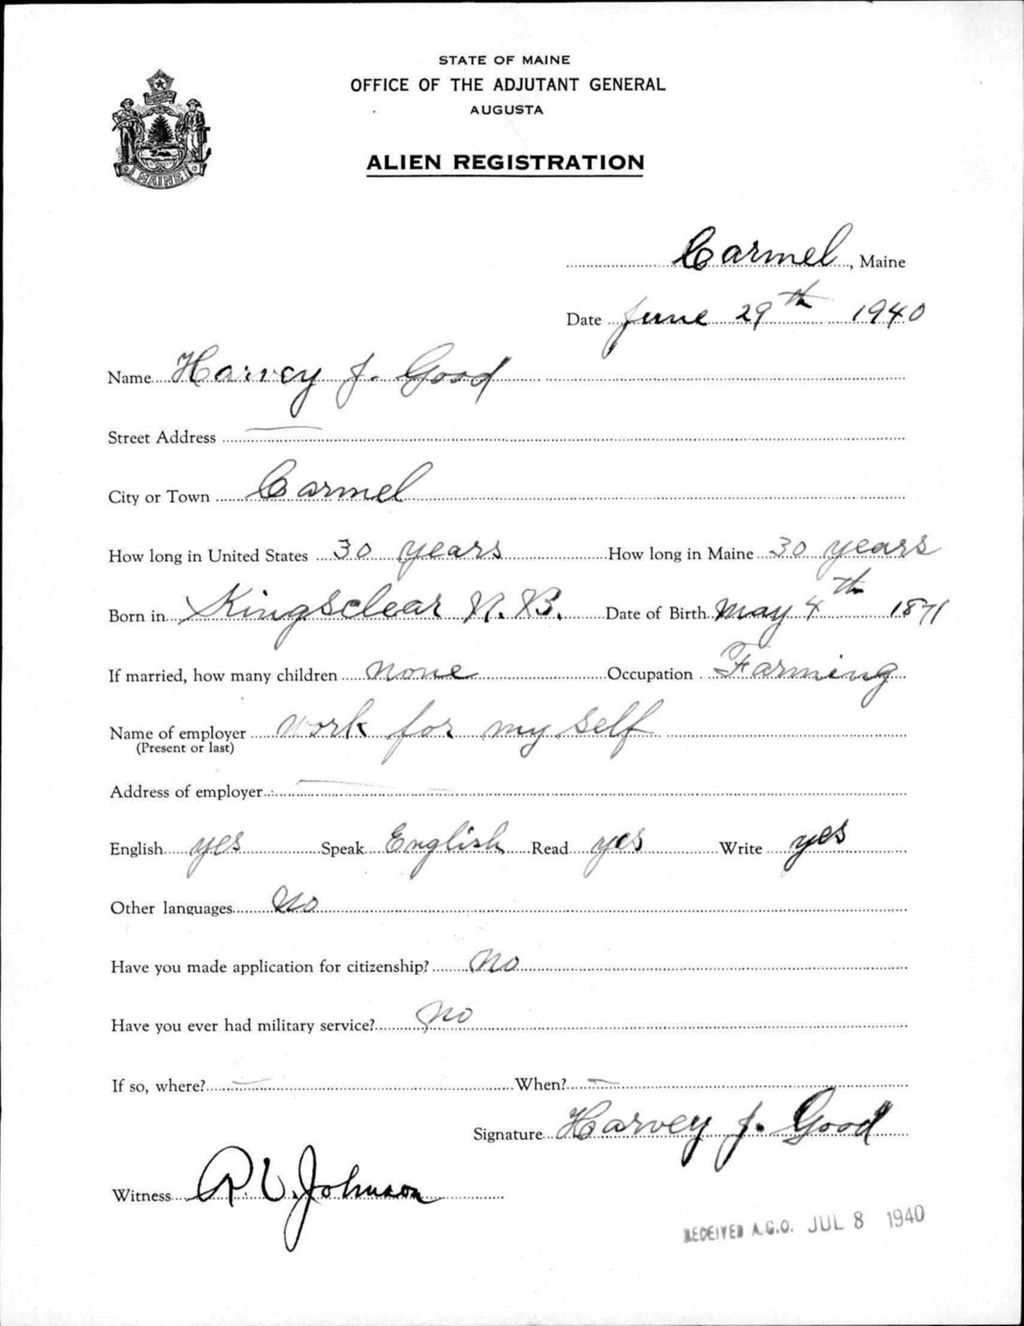 STATE OF MAINE
OFFICE OF THE ADJUTANT GENERAL
AUGUSTA
ALIEN REGISTRATION
MAINE
Carmel, Maine
Date June 29th 1940
Name Harvey J. Good
Street Address —
City or Town Carmel
How long in United States 30 years How long in Maine 30 years
Born in Kingsclear N.B. Date of Birth May 4th 1871
If married, how many children none Occupation Farming
Name of employer work for my self
(Present or last)
Address of employer —
English yes Speak English Read yes Write yes
Other languages No
Have you made application for citizenship? No
Have you ever had military service? No
If so, where? — When? —
Signature Harvey J. Good
Witness R. V. Johnson
RECEIVED A.G.O. JUL 8 1940